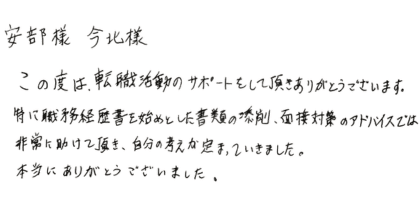 安部様 今北様
この度は、転職活動のサポートをして頂きありがとうございます。
特に職務経歴書を始めとした書類の添削、面接対策のアドバイスでは
非常に助けて頂き、自分の考えが定まっていきました。
本当にありがとうございました。